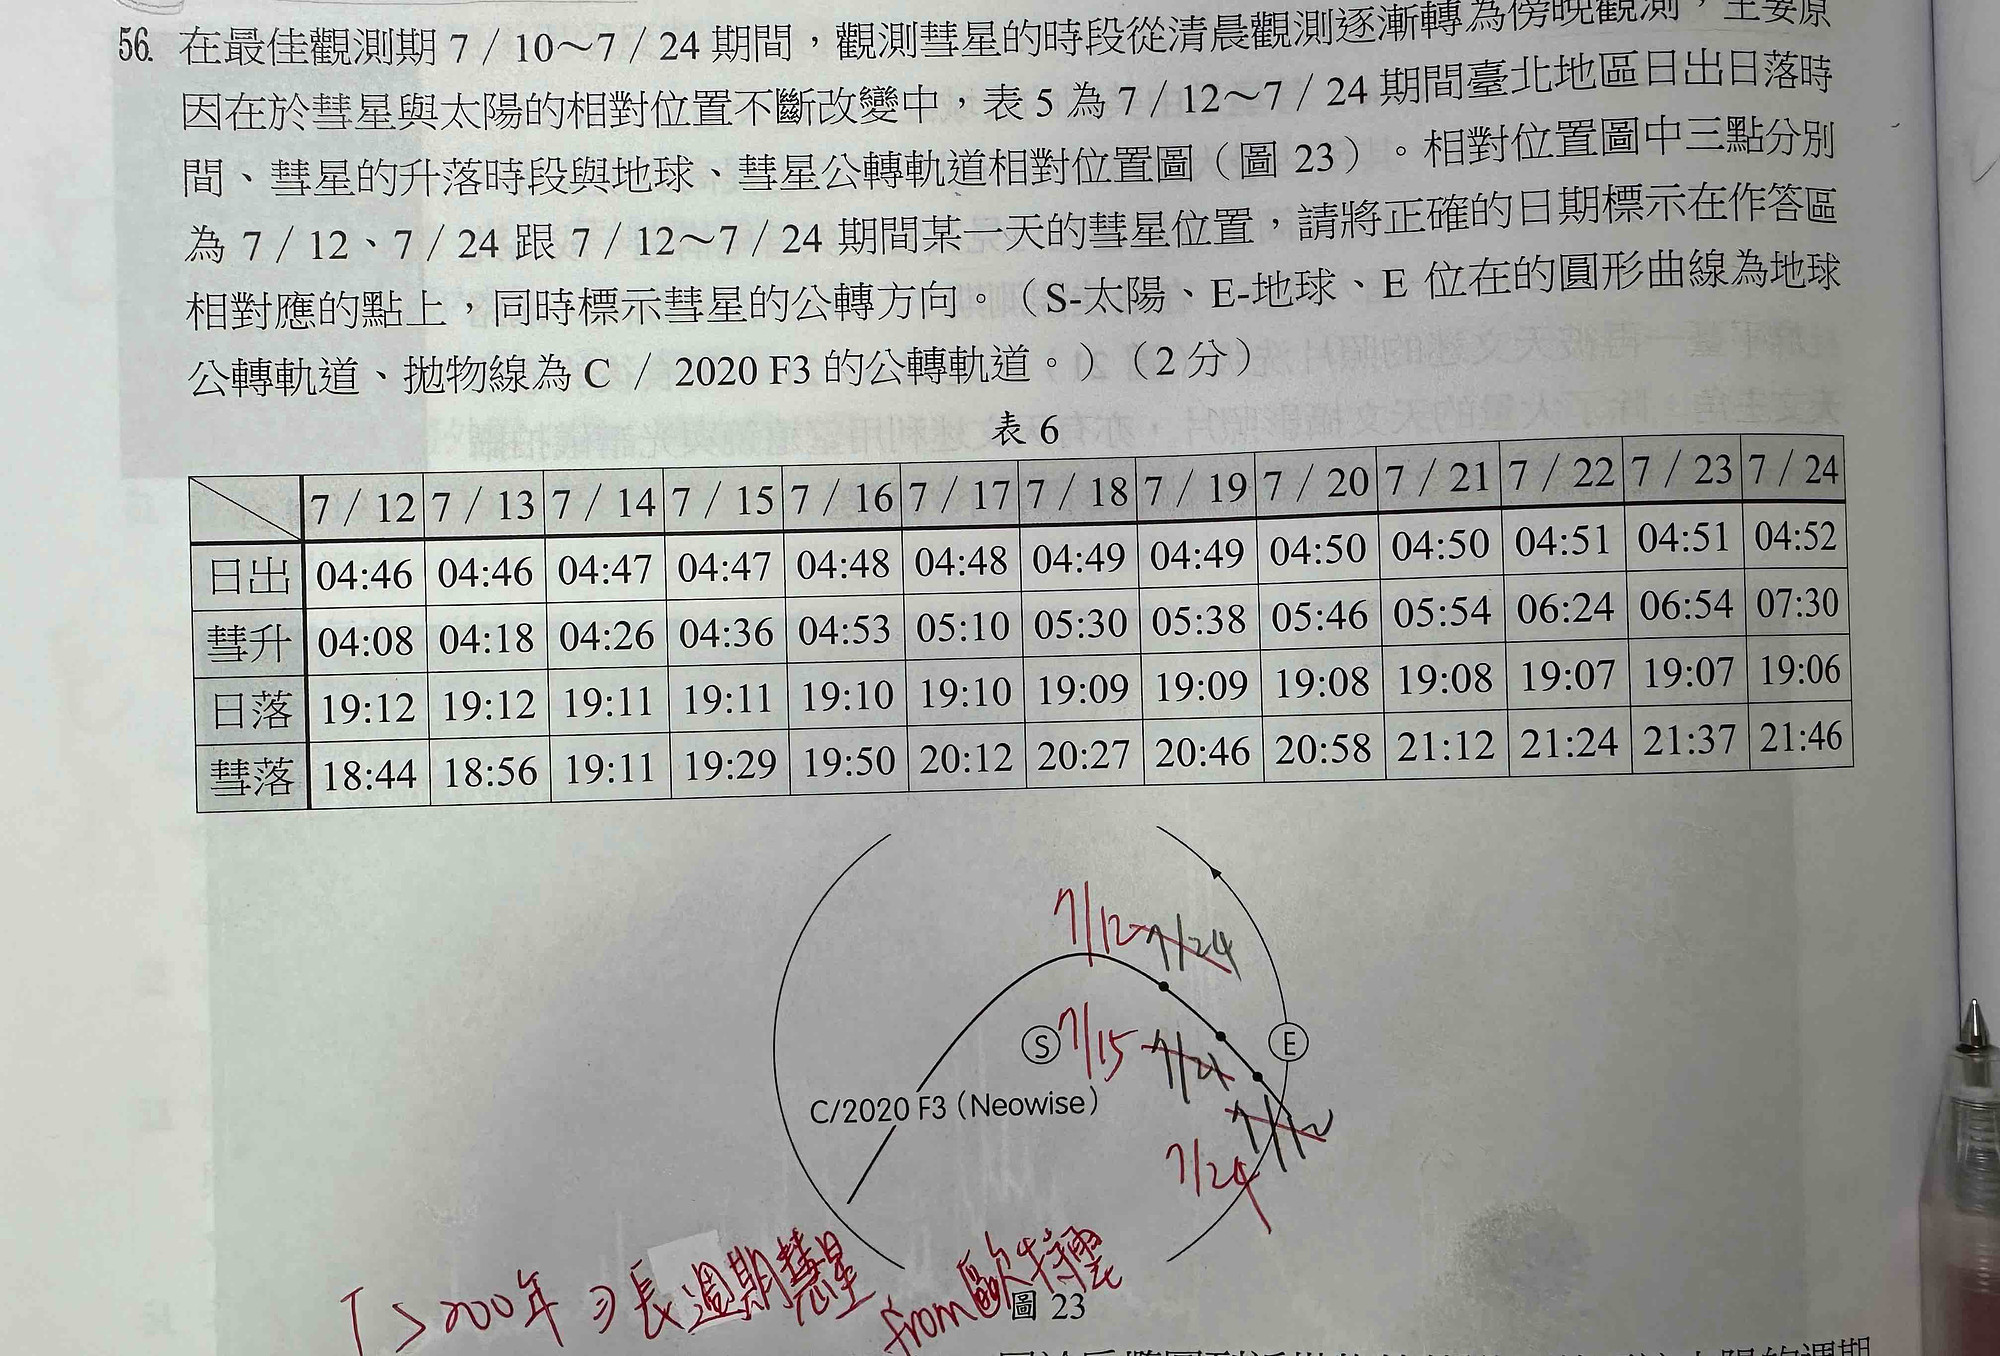 56. 在最佳觀測期 7 / 10～7 / 24 期間，觀測彗星的時段從清晨觀測逐漸轉為傍晚觀測，主要原
因在於彗星與太陽的相對位置不斷改變中，表 5 為 7 / 12～7 / 24 期間臺北地區日出日落時
間、彗星的升落時段與地球、彗星公轉軌道相對位置圖（圖 23）。相對位置圖中三點分別
為 7 / 12、7 / 24 跟 7 / 12～7 / 24 期間某一天的彗星位置，請將正確的日期標示在作答區
相對應的點上，同時標示彗星的公轉方向。（S-太陽、E-地球、E 位在的圓形曲線為地球
公轉軌道、拋物線為 C / 2020 F3 的公轉軌道。）（2 分）
表 6
7 / 12 7 / 13 7 / 14 7 / 15 7 / 16 7 / 17 7 / 18 7 / 19 7 / 20 7 / 21 7 / 22 7 / 23 7 / 24
日出 04:46 04:46 04:47 04:47 04:48 04:48 04:49 04:49 04:50 04:50 04:51 04:51 04:52
彗升 04:08 04:18 04:26 04:36 04:53 05:10 05:30 05:38 05:46 05:54 06:24 06:54 07:30
日落 19:12 19:12 19:11 19:11 19:10 19:10 19:09 19:09 19:08 19:08 19:07 19:07 19:06
彗落 18:44 18:56 19:11 19:29 19:50 20:12 20:27 20:46 20:58 21:12 21:24 21:37 21:46
7/12 7/24
S 7/15 7/21 E
C/2020 F3 (Neowise)
7/12
7/24
T > 200年 ⇒ 長週期彗星 from 歐特雲
圖 23